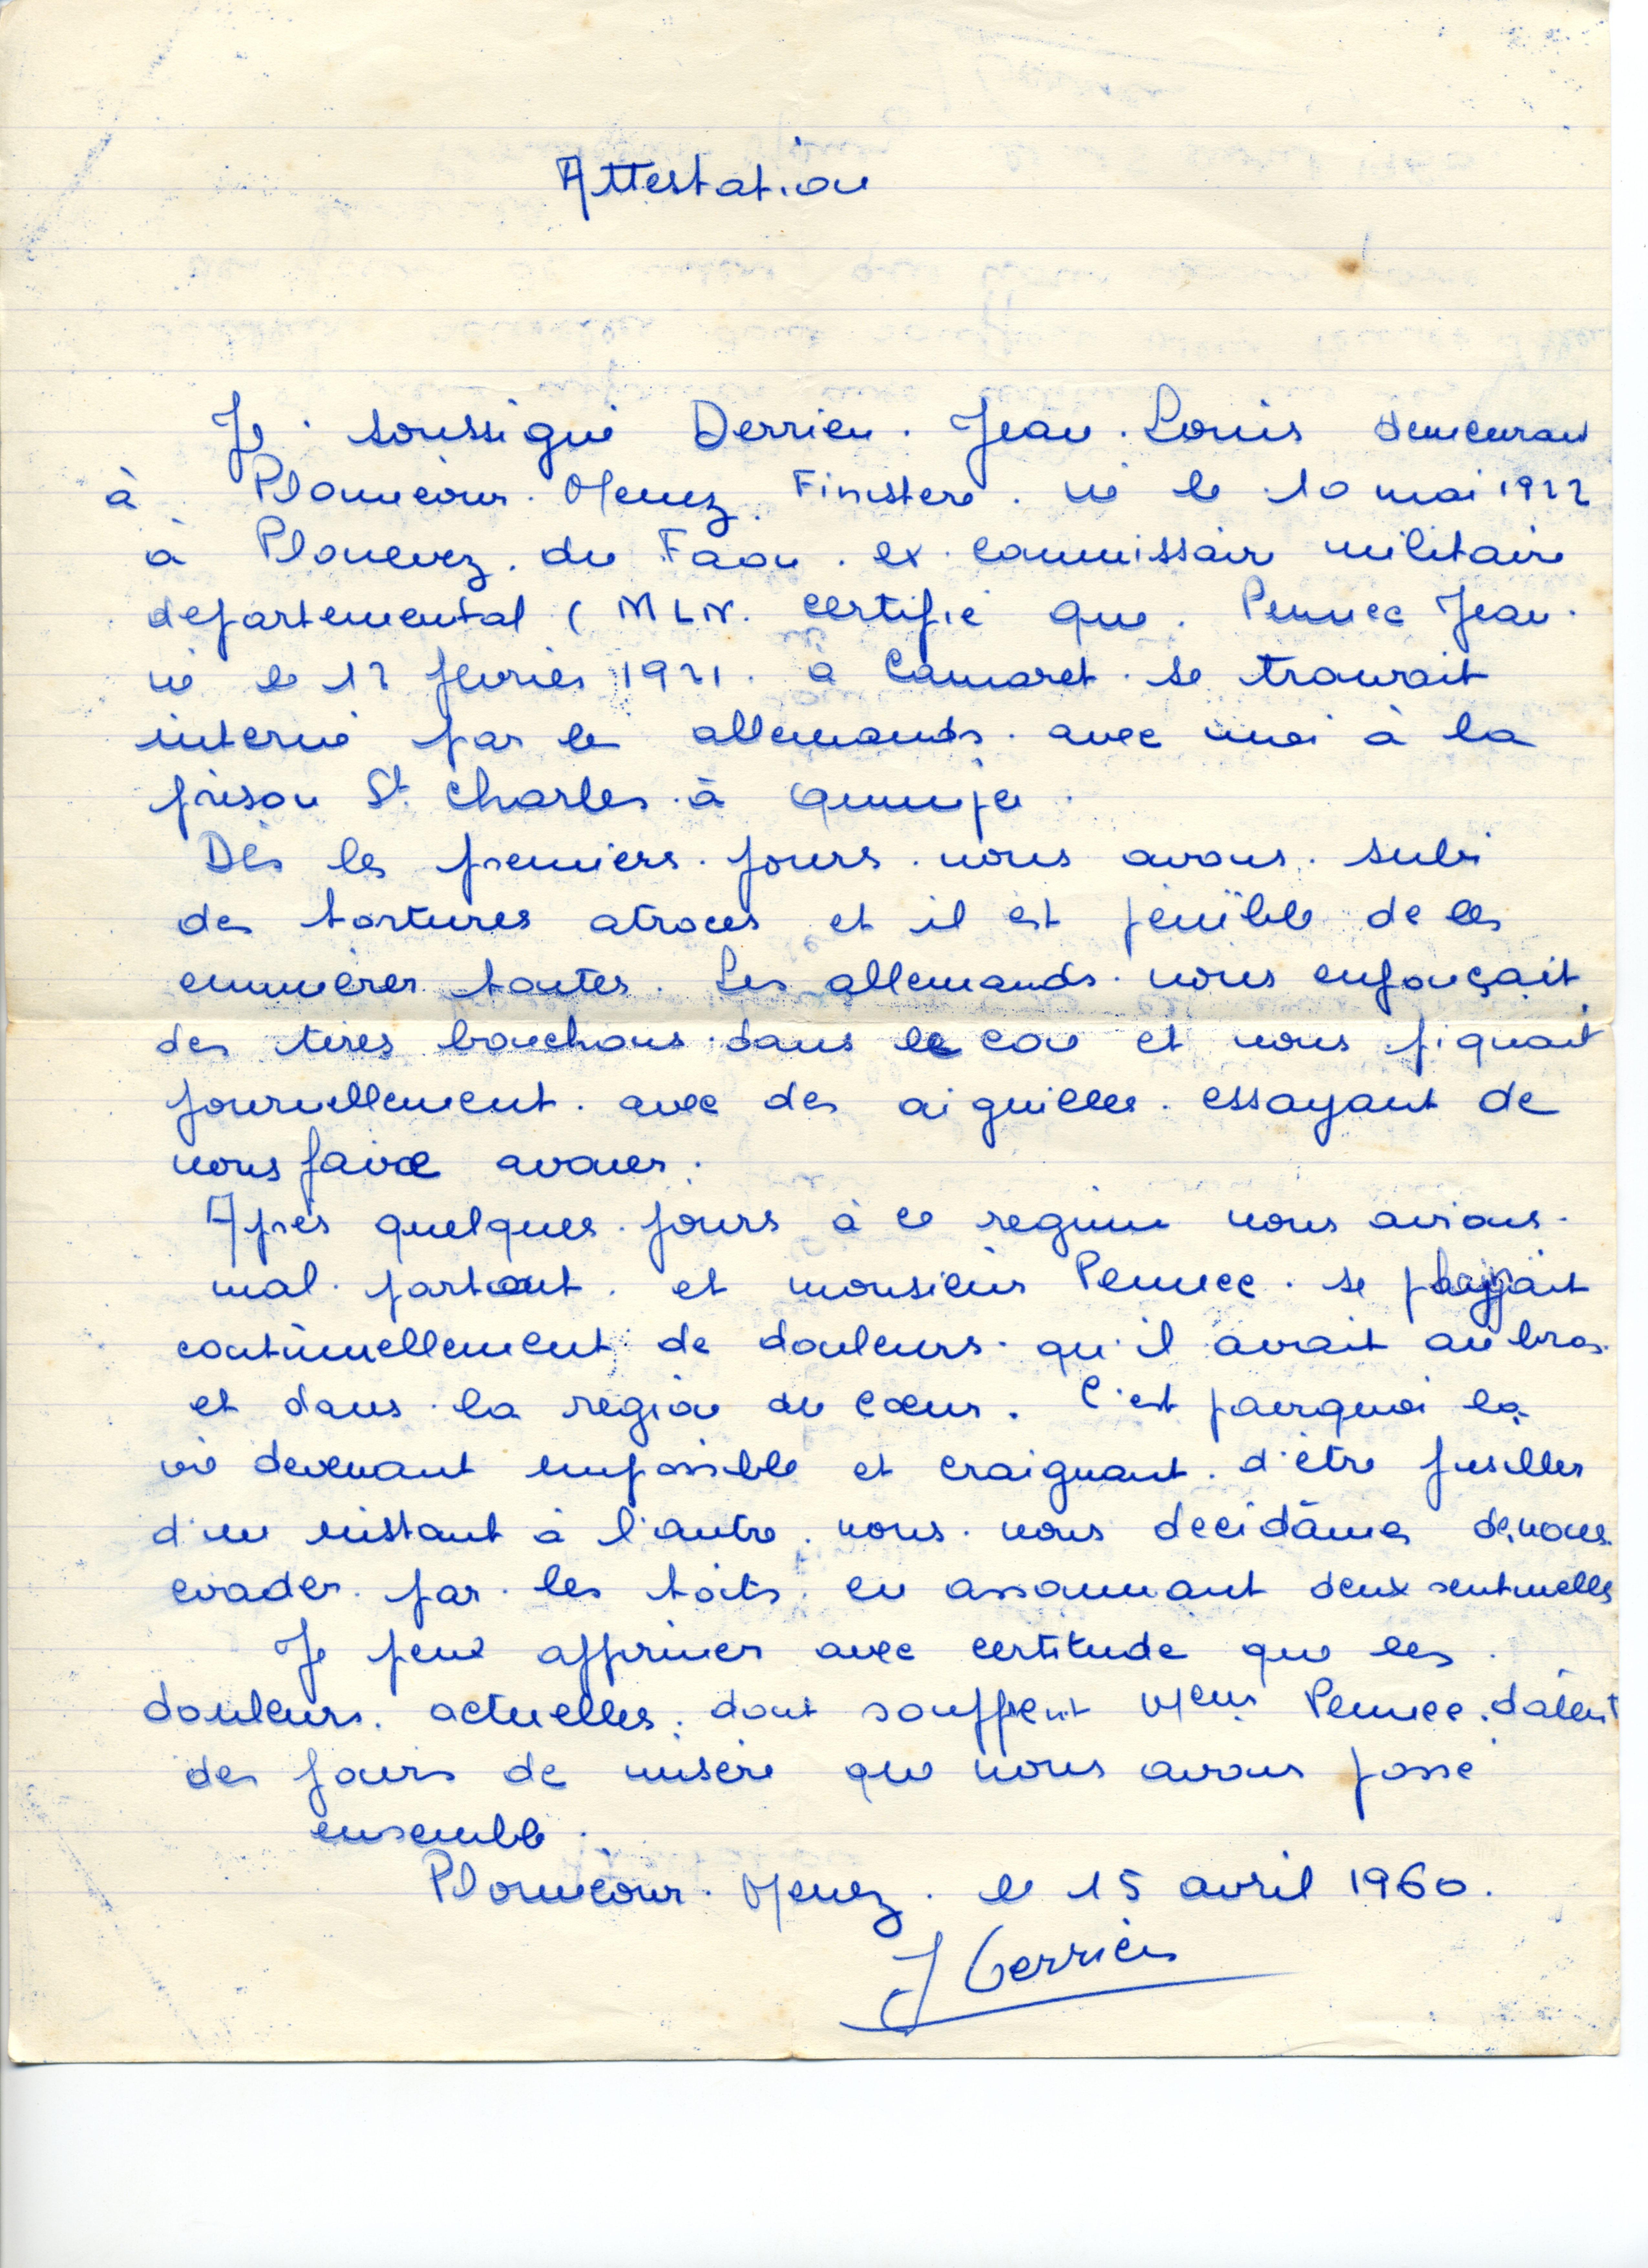 Attestation
Je soussigné Derrien Jean Louis demeurant
à Plounéour Menez Finistere né le 10 mai 1922
à Plonevez du Faou ex commissaire militaire
departemental ( MLN. certifie que Pennec Jean
né le 12 fevrier 1921 a Camaret se trouvait
interné par les allemands avec moi à la
prison St Charles à Quimper
Dès les premiers jours nous avons subi
des tortures atroces et il est penïble de les
enumèrer toutes. Les allemands nous enfonçait
des tires bouchons dans le cou et nous piquait
journellement avec des aiguilles essayant de
nous faire avouer.
Après quelques jours à ce regime nous avions
mal partout et monsieur Pennec se plaignait
continuellement de douleurs qu'il avait au bras
et dans la region du coeur. C'est pourquoi la
vie devenant impossible et craignant d'être fusiller
d'un instant à l'autre nous nous decidâmes de nous
evader par les toits en assommant deux sentinelles
Je peux affirmer avec certitude que les
douleurs actuelles dont souffrent Meur Pennec datent
des jours de misère que nous avons passé
ensemble.
Plounéour Menez le 15 avril 1960.
J Derrien